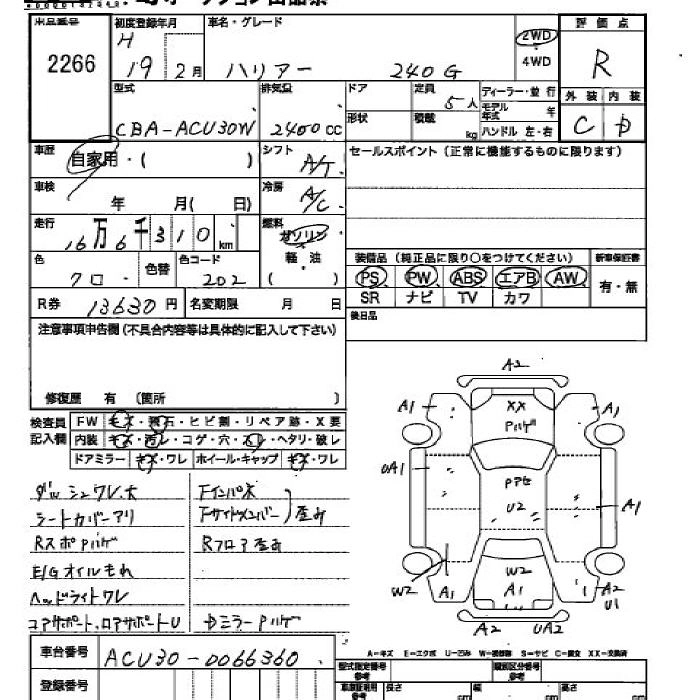 出品番号 初度登録年月 車名・グレード 評価点
2266 H 19 2月 ハリアー 240G 2WD 4WD R
型式 排気量 ドア 定員 ディーラー・並行 外装 内装
CBA-ACU30W 2400cc 5人 モデル年式 年 C D
形状 積載 kg ハンドル 左・右
車歴 自家用・( ) シフト A/T セールスポイント(正常に機能するものに限ります)
車検 年 月( 日) 冷房 A/C
走行 16万6千310km 燃料 ガソリン
軽・油
( )
色 クロ 色替 色コード 202 装備品(純正品に限り○をつけてください) 新車保証書
PS PW ABS エアB AW 有・無
SR ナビ TV カワ
R券 13630円 名変期限 月 日 後日品
注意事項申告欄(不具合内容等は具体的に記入して下さい)
修復歴 有 〔箇所 〕
検査員記入欄 FW キズ・飛石・ヒビ割・リペア跡・X要
内装 キズ・汚レ・コゲ・穴・スレ・ヘタリ・破レ
ドアミラー キズ・ワレ ホイール・キャップ キズ・ワレ
ダッシュワレ大 Fインパネ
シートカバーアリ Fサイドメンバー 歪み
RスポPハゲ Rフロア歪み
E/Gオイルもれ
ヘッドライトワレ
コアサポート、ロアサポートU DミラーPハゲ
A2
A1 XX A1
Pハゲ
UA1 U2 A1
W2 A1 W2 A1 A2 U1
A2 UA2
車台番号 ACU30-0066360
登録番号
A-キズ E-エクボ U-凹み W-補修跡 S-サビ C-腐食 XX-交換済
型式指定番号 参考 類別区分番号 参考
車庫証明用 参考 長さ cm 幅 cm 高さ cm